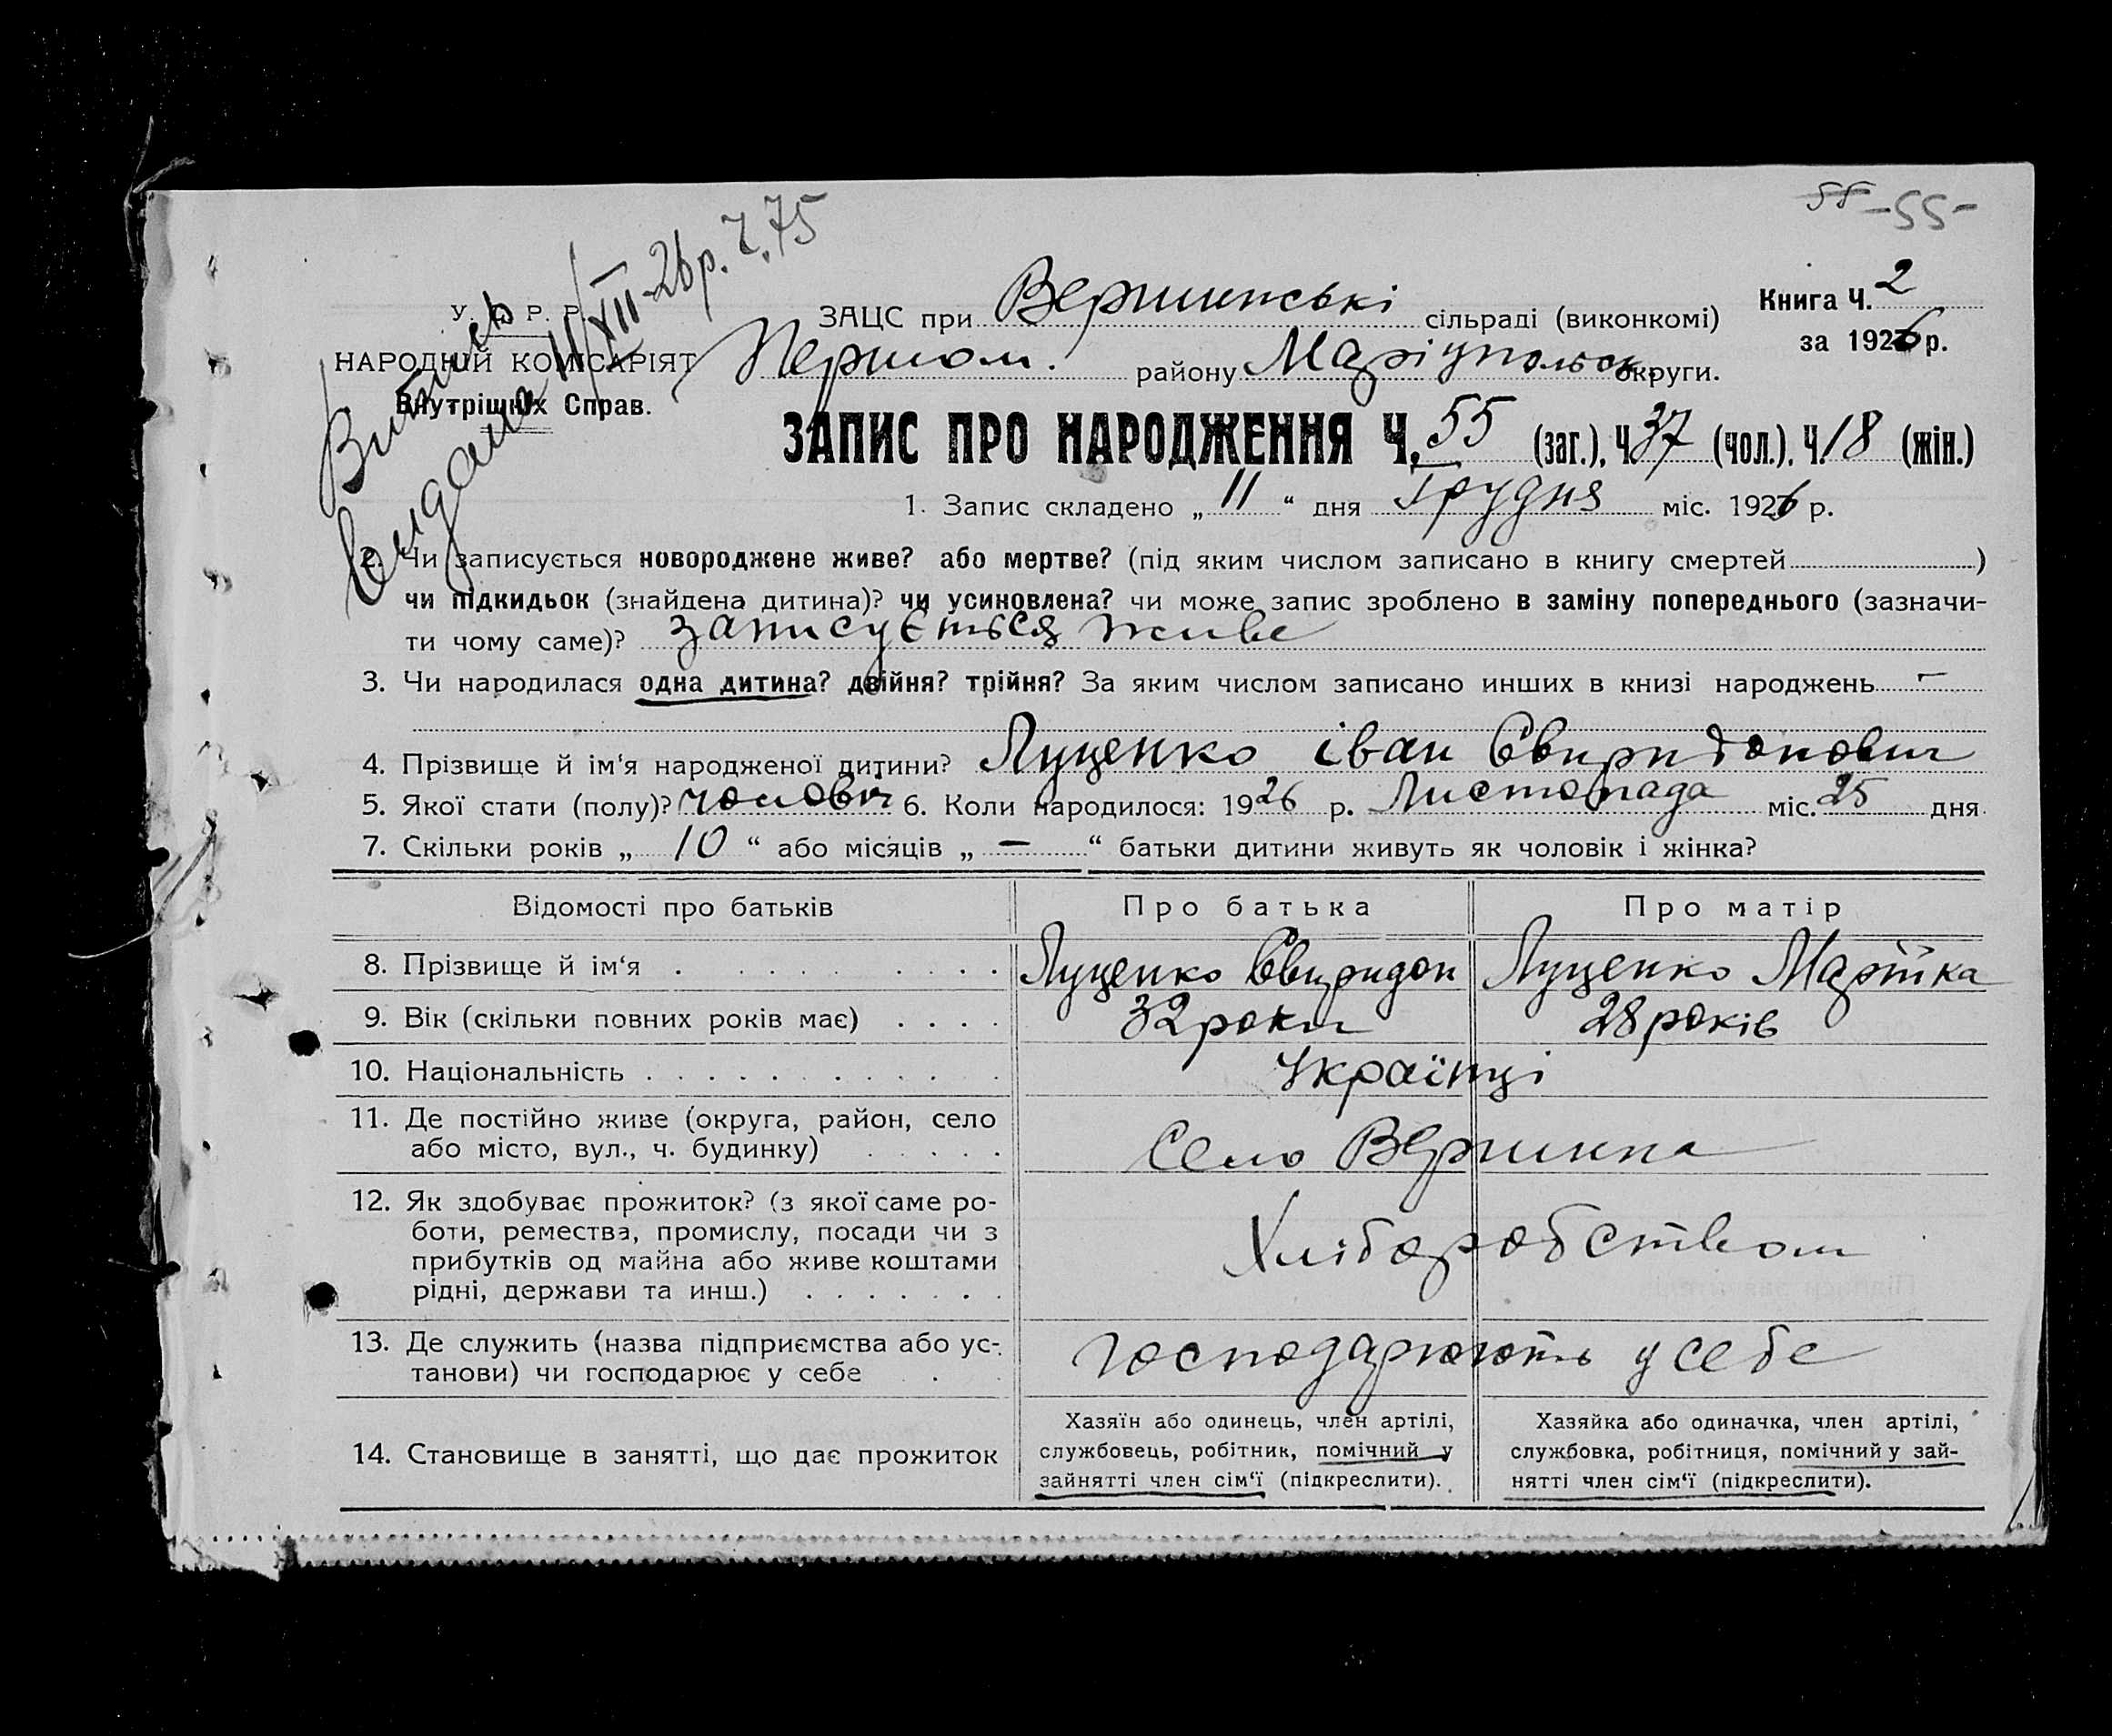 58 -55-
Випись
видана 11/XII-26 р. Ч. 75
У. С. Р. Р.
НАРОДНІЙ КОМІСАРІЯТ
Внутрішніх Справ.
ЗАЦС при Вершинські сільраді (виконкомі)
Книга Ч. 2
за 1926 р.
Першом. району Маріупольск. округи.
ЗАПИС ПРО НАРОДЖЕННЯ Ч. 55 (заг.), Ч 37 (чол.), Ч. 18 (жін.)
1. Запис складено „ 11 “ дня Грудня міс. 1926 р.
2. Чи записується новороджене живе? або мертве? (під яким числом записано в книгу смертей )
чи підкидьок (знайдена дитина)? чи усиновлена? чи може запис зроблено в заміну попереднього (зазначи-
ти чому саме)? записується живе
3. Чи народилася одна дитина? двійня? трійня? За яким числом записано инших в книзі народжень —
4. Прізвище й ім‘я народженої дитини? Луценко іван Свиридонович
5. Якої стати (полу)? чоловіч 6. Коли народилося: 1926 р. Листопада міс. 25 дня
7. Скільки років „ 10 “ або місяців „ — “ батьки дитини живуть як чоловік і жінка?
Відомості про батьків Про батька Про матір
8. Прізвище й ім‘я . . . . . . . . . Луценко Свиридон Луценко Мартка
9. Вік (скільки повних років має) . . . . 32 роки 28 років
10. Національність . . . . . . . . . . Українці
11. Де постійно живе (округа, район, село
або місто, вул., ч. будинку) . . . . . Село Вершина
12. Як здобуває прожиток? (з якої саме ро-
боти, ремества, промислу, посади чи з
прибутків од майна або живе коштами
рідні, держави та инш.) . . . . . . . Хліборобством
13. Де служить (назва підприємства або ус-
танови) чи господарює у себе . . господарюють у себе
14. Становище в занятті, що дає прожиток
Хазяїн або одинець, член артілі,
службовець, робітник, помічний у
зайнятті член сім‘ї (підкреслити).
Хазяйка або одиначка, член артілі,
службовка, робітниця, помічний у зай-
нятті член сім‘ї (підкреслити).